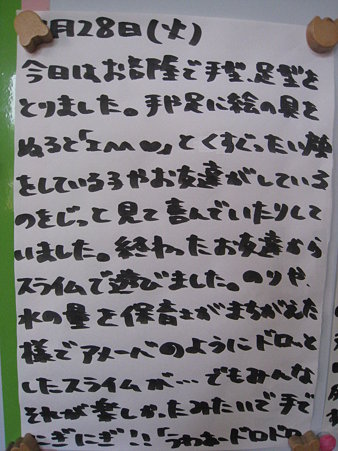 月28日(火)
今日はお部屋で手型、足型を
とりました。手や足に絵の具を
ぬると「エヘ♥」とくすぐったい顔
をしている子やお友達がしている
のをじっと見て喜んでいたりして
いました。終わったお友達から
スライムで遊びました。のりや、
水の量を保育士がまちがえた
様でアメーバのようにドローと
したスライムが…でもみんな
それが楽しかったみたいで手で
ぎにぎ!!「うわぁードロドロ